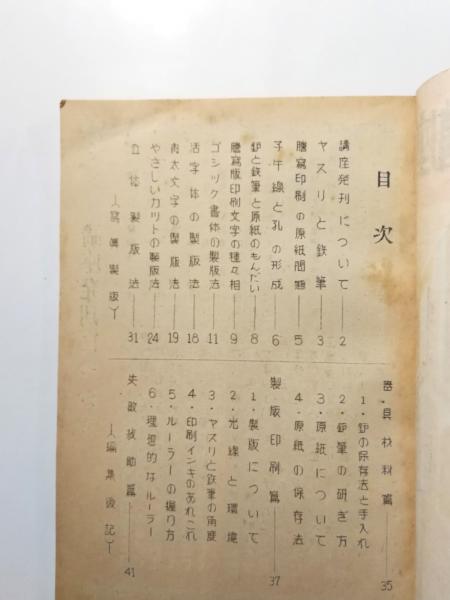 目次
講座発刊について――2
ヤスリと鉄筆――3
謄寫印刷の原紙問題――5
子午線と孔の形成――6
鈩と鉄筆と原紙のもんだい――8
謄寫版印刷文字の種々相――9
ゴシック書体の製版法――11
活字体の製版法――18
肉太文字の製版法――19
やさしいカットの製版法――24
立体製版法――31
(寫真製版)
器具材料篇――35
1・鈩の保存法と手入れ
2・鉄筆の研ぎ方
3・原紙について
4・原紙の保存法
製版印刷篇――37
1・製版について
2・光線と環境
3・ヤスリと鉄筆の角度
4・印刷インキのあれこれ
5・ルーラーの握り方
6・理想的なルーラー
失敗救助篇――41
(編集後記)